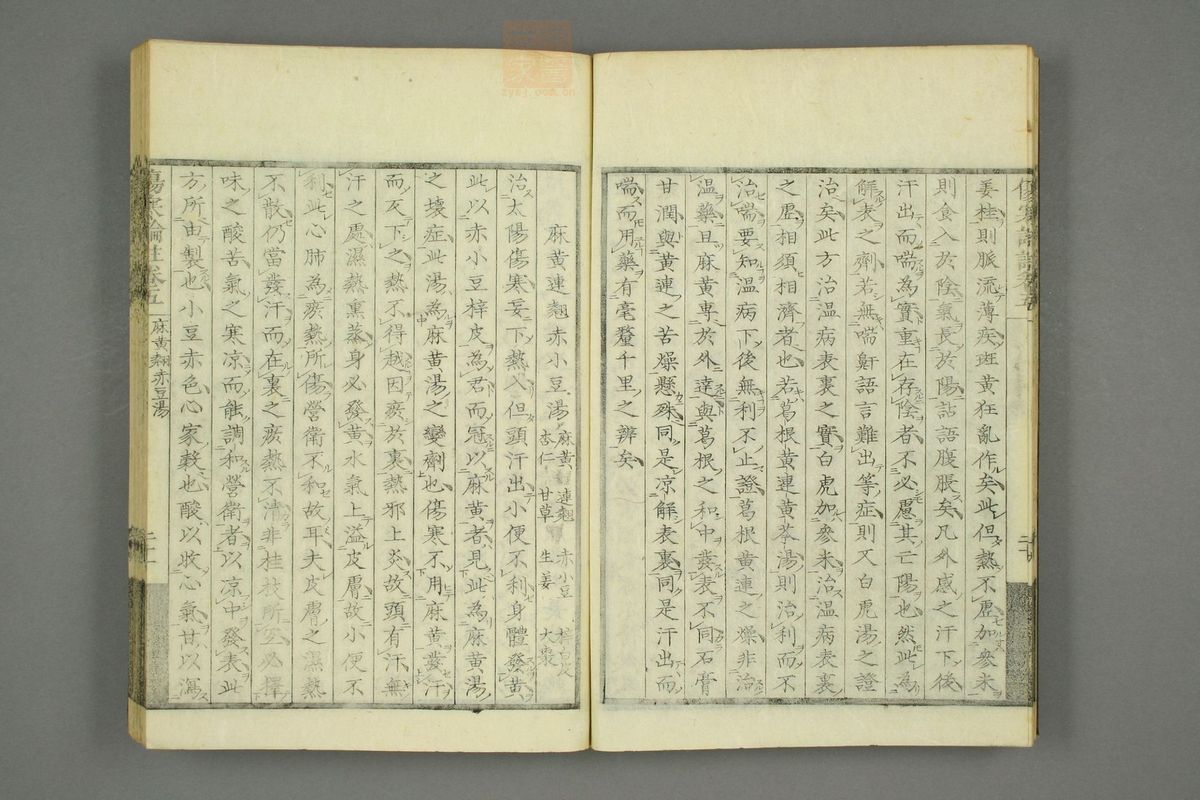 姜桂則脈流薄疾斑黃狂亂作矣此但熱不虛加參米
則食入於陰氣長於陽詀語腹脹矣凡外感之汗下後
汗出而喘為實重在存陰者不必慮其亡陽也然此為
解表之劑若無喘鼾語言難出等症則又白虎湯之證
治矣此方治溫病表裏之實白虎加參米治溫病表裏
之虛相須相濟者也若葛根黃連黃芩湯則治利而不
治喘要知溫病下後無利不止證葛根黃連之燥非治
溫藥且麻黃專於外達與葛根之和中發表不同石膏
甘潤與黃連之苦燥懸殊同是涼解表裏同是汗出而
喘而用藥有毫釐千里之辨矣
麻黃連翹赤小豆湯 麻黃 連翹 赤小豆
杏仁 甘草 生姜 大棗
治太陽傷寒妄下熱入但頭汗出小便不利身體發黃
此以赤小豆梓皮為君而冠以麻黃者見此為麻黃湯
之壞症此湯為麻黃湯之變劑也傷寒不用麻黃發汗
而反下之熱不得越因瘀於裏熱邪上炎故頭有汗無
汗之處濕熱熏蒸身必發黃水氣上溢皮膚故小便不
利此心肺為瘀熱所傷營衛不和故耳夫皮膚之濕熱
不散仍當發汗而在裏之瘀熱不清非桂枝所宜必擇
味之酸苦氣之寒涼而能調和營衛者以涼中發表此
方所由製也小豆赤色心家穀也酸以收心氣甘以瀉
傷寒論註卷五
麻黃翹赤豆湯